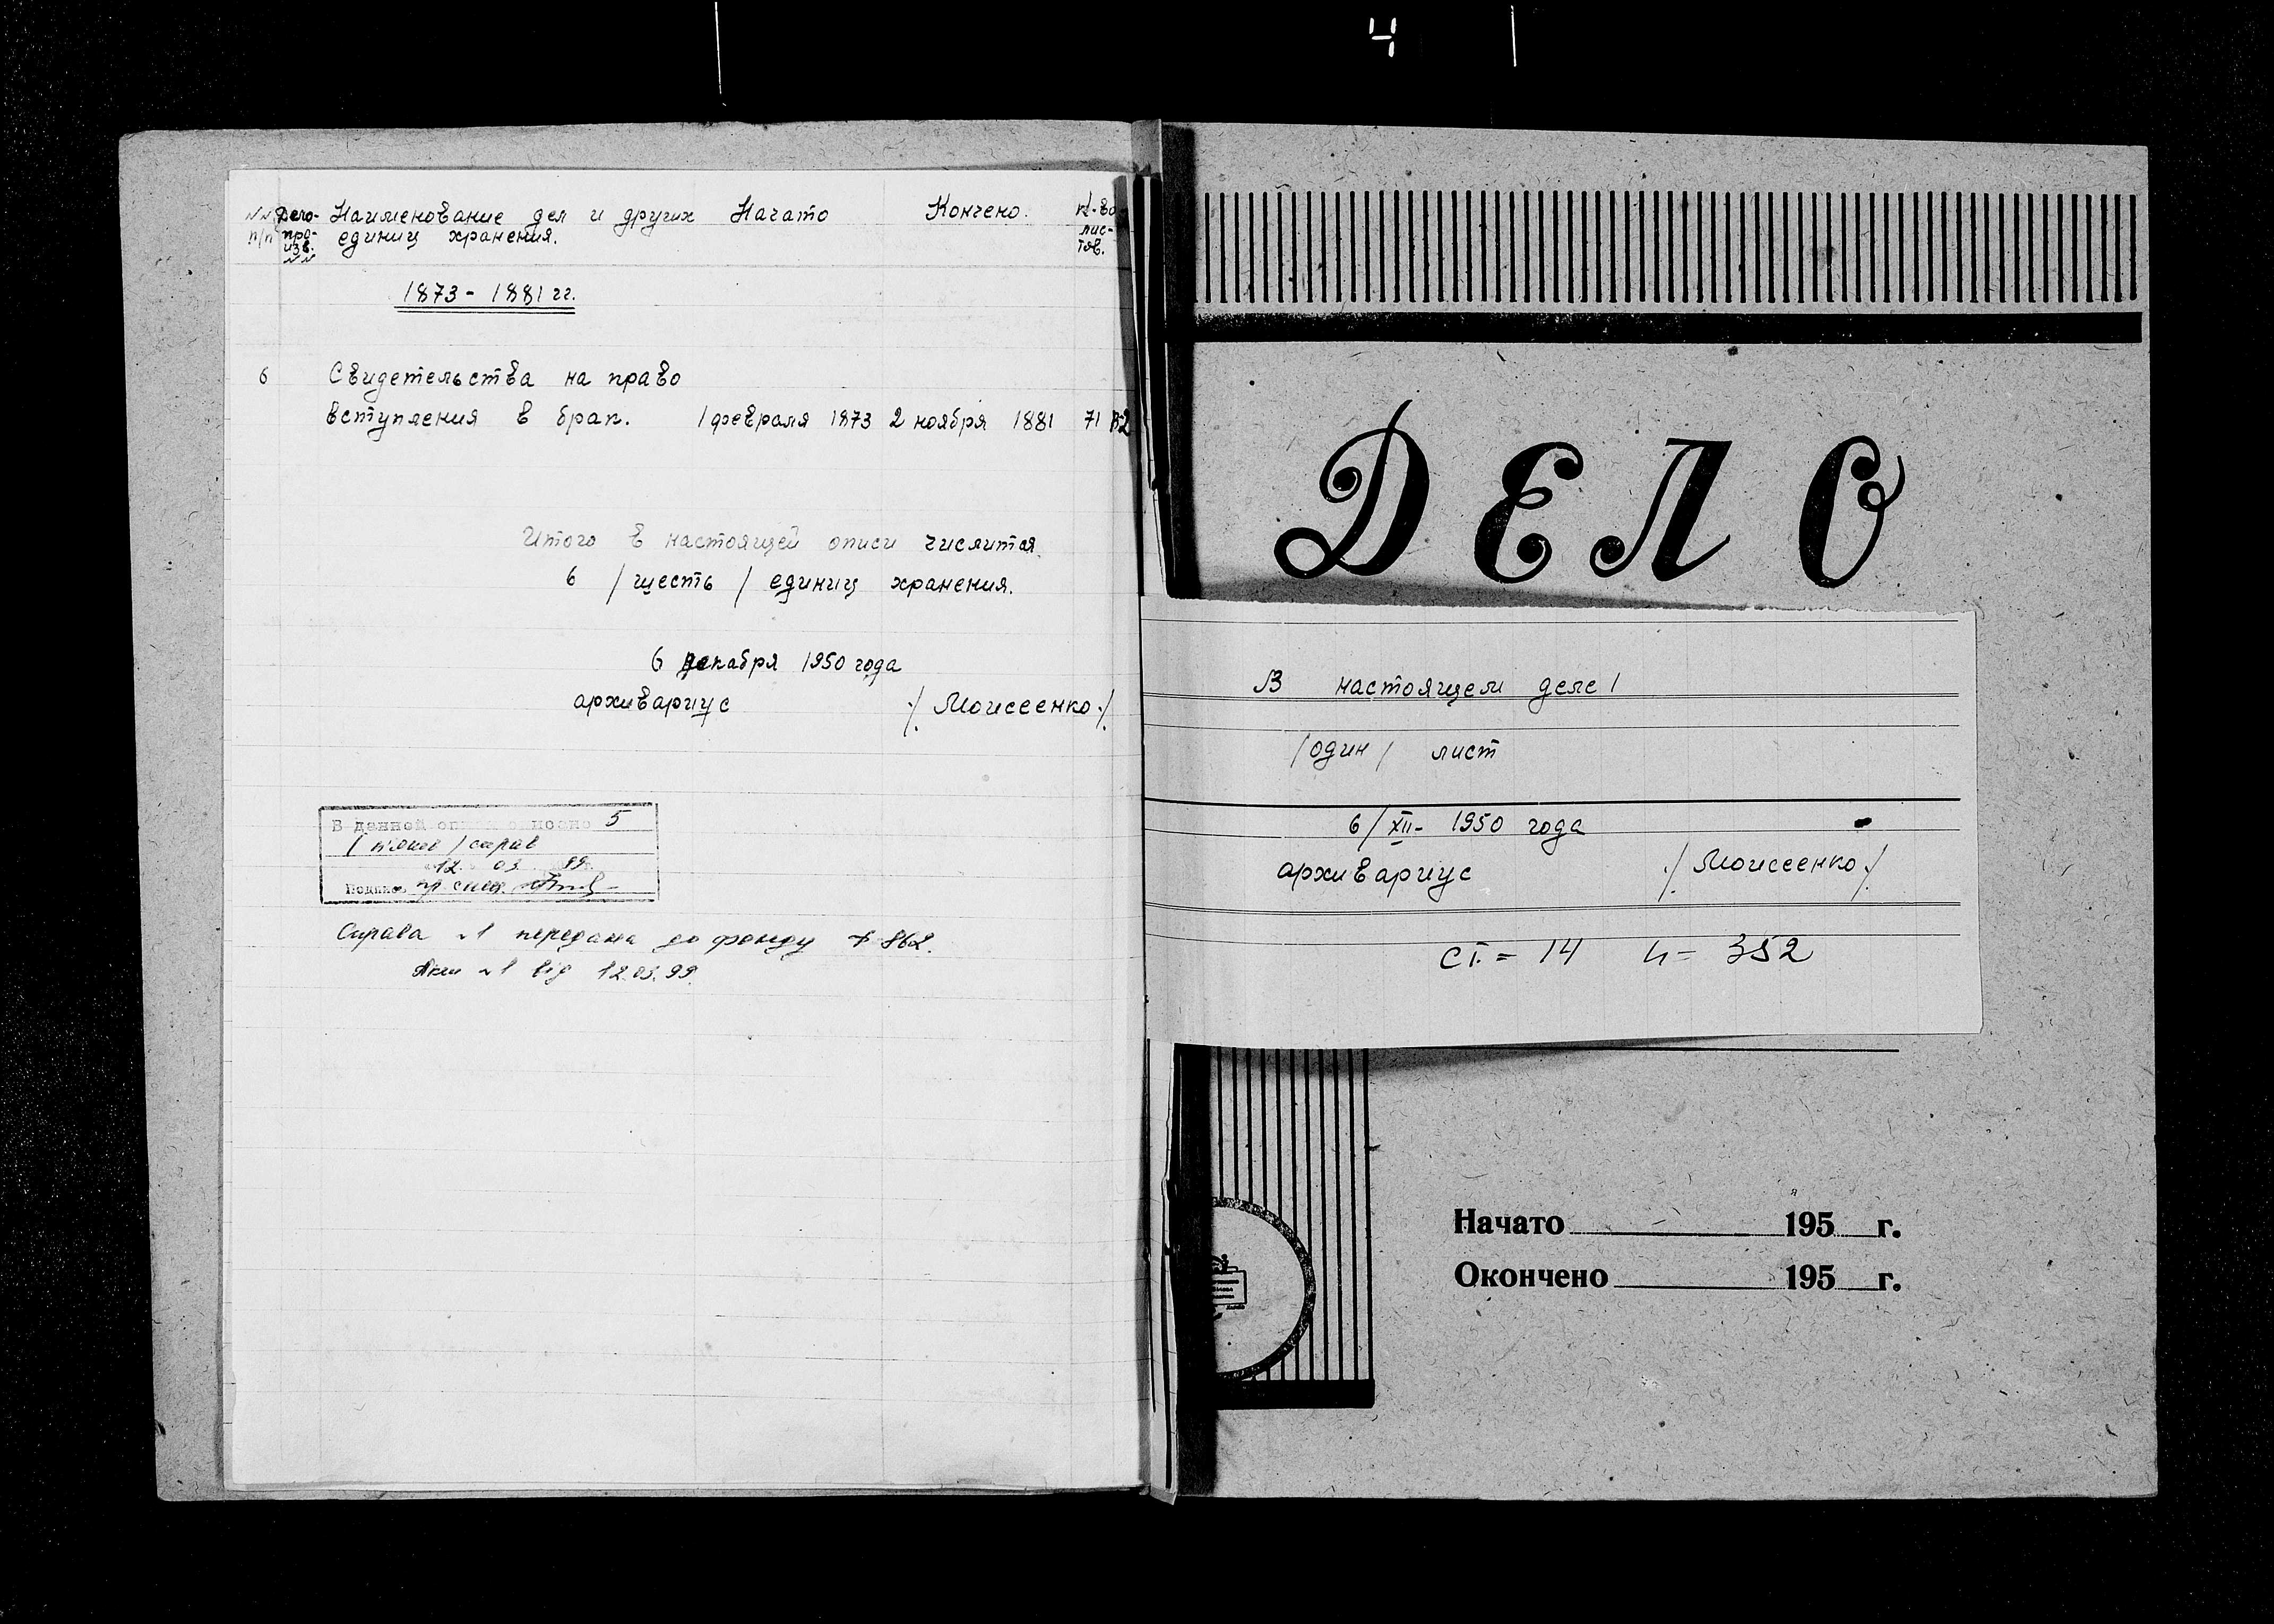 4
№№ п/п
Дело-произв. №№
Наименование дел и других
единиц хранения.
Начато
Кончено.
к-во лис-тов.
1873 - 1881 гг.
6 Свидетельства на право
вступления в брак. 1 февраля 1873 2 ноября 1881 71
Итого в настоящей описи числится
6 /шесть/ единиц хранения.
6 декабря 1950 года
архивариус ./ Моисеенко ./
В данной описи 5
/ п'ять / справ
12. 03. 99
Подпись
Справа №1 передана до фонду 862.
Акт №1 від 12.03.99.
ДЕЛО
В настоящем деле 1
/один/ лист
6/XII- 1950 года
архивариус ./ Моисеенко ./
СТ. = 14 Ч = 352
Начато 195 г.
Окончено 195 г.